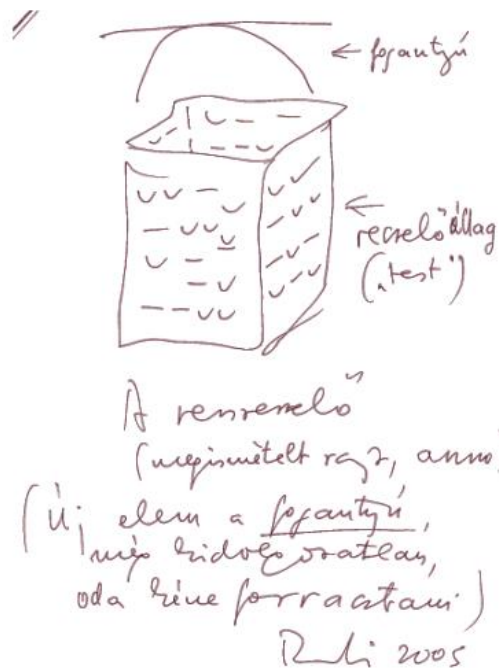 ← fogantyú
← reszelőállag
("test")
A versreszelő
(megismételt rajz, anno)
(Új elem a fogantyú,
még kidolgozatlan,
oda kéne forrasztani)
2005